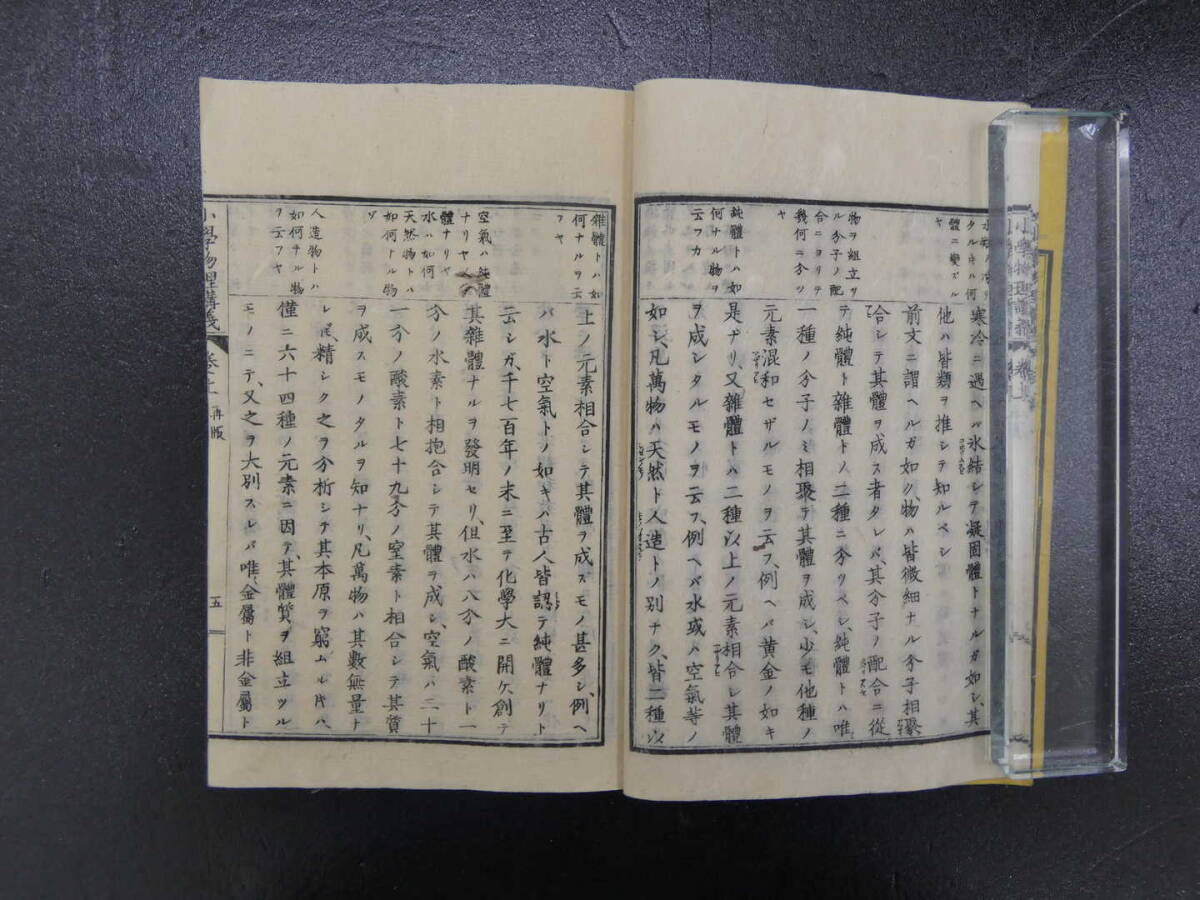 寒冷ニ遇ヘバ氷結シテ凝固體トナルガ如シ、其
他ハ皆類ヲ推シテ知ルベシ
前文ニ謂ヘルガ如ク、物ハ皆微細ナル分子相聚
合シテ其體ヲ成ス者タレバ、其分子ノ配合ニ從
テ純體ト雜體トノ二種ニ分ツベシ、純體トハ唯
一種ノ分子ノミ相聚テ其體ヲ成シ、少モ他種ノ
元素混和セザルモノヲ云フ、例ヘバ黄金ノ如キ
是ナリ、又雜體トハ二種以上ノ元素相合シ其體
ヲ成シタルモノヲ云フ、例ヘバ水或ハ空氣等ノ
如シ、凡萬物ハ天然ト人造トノ別ナク、皆二種以
タルキハ何
體ニ變ズル
ヤ
物ヲ組立ツ
ル分子ノ配
合ニヨリテ
幾何ニ分ツ
ヤ
純體トハ如
何ナル物ヲ
云フカ
上ノ元素相合シテ其體ヲ成スモノ甚多シ、例ヘ
バ水ト空氣トノ如キハ古人皆認テ純體ナリト
云シガ、千七百年ノ末ニ至テ化學大ニ開ケ創テ
其雜體ナルヲ發明セリ、但水ハ八分ノ酸素ト一
分ノ水素ト相抱合シテ其體ヲ成シ、空氣ハ二十
一分ノ酸素ト七十九分ノ窒素ト相合シテ其質
ヲ成スモノタルヲ知ナリ、凡萬物ハ其數無量ト
レ𪜈、精シク之ヲ分析シテ其本原ヲ窮ムル片ハ、
僅ニ六十四種ノ元素ニ因テ、其體質ヲ組立ツル
モノニテ、又之ヲ大別スレバ唯、金屬ト非金屬ト
雜體トハ如
何ナルヲ云
フヤ
空氣ハ純體
ナリヤ〻〻
體ナリヤ
水ハ如何
天然物トハ
如何ナル物
ゾ
人造物トハ
如何ナル物
ヲ云フヤ
小學物理講義 卷之上 再版
五